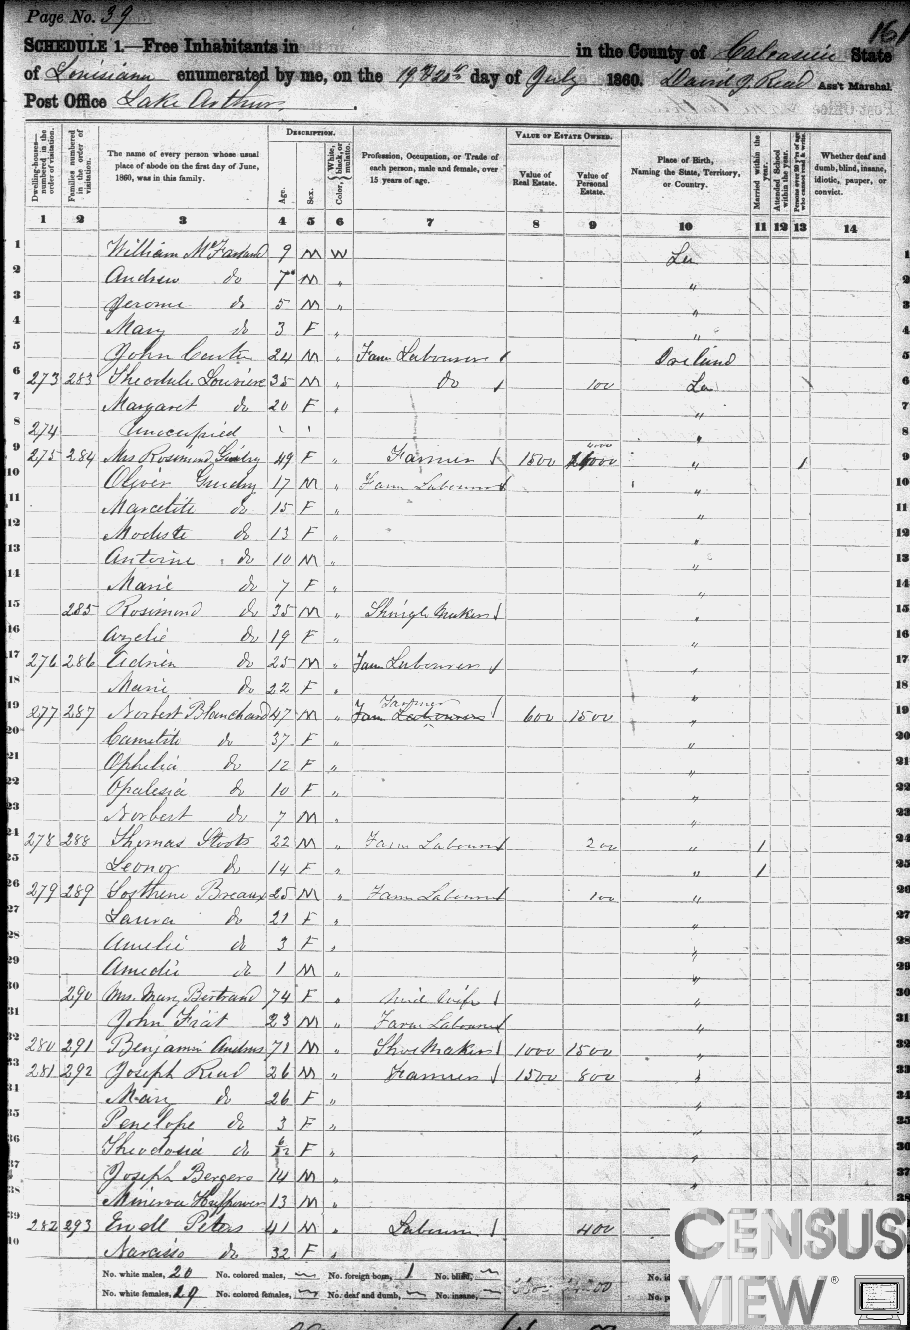 Page No. 39
161
SCHEDULE 1.—Free Inhabitants in in the County of Calcasieu State
of Louisiana enumerated by me, on the 19th & 21st day of July 1860. David J. Read Ass't Marshal.
Post Office Lake Arthur
Dwelling-houses—numbered in the order of visitation.
Families numbered in the order of visitation.
The name of every person whose usual place of abode on the first day of June, 1860, was in this family.
DESCRIPTION.
Age.
Sex.
Color, White, black, or mulatto.
Profession, Occupation, or Trade of each person, male and female, over 15 years of age.
VALUE OF ESTATE OWNED.
Value of Real Estate.
Value of Personal Estate.
Place of Birth, Naming the State, Territory, or Country.
Married within the year.
Attended School within the year.
Persons over 20 y'rs of age who cannot read & write.
Whether deaf and dumb, blind, insane, idiotic, pauper, or convict.
1 2 3 4 5 6 7 8 9 10 11 12 13 14
1 William McFarland 9 M W La 1
2 Andrew do 7 M " " 2
3 Jerome do 5 M " " 3
4 Mary do 3 F " " 4
5 John 24 M " Farm Labourer / Ireland 5
6 273 283 Theodule Louviere 35 M " do / 100 La / 6
7 Margaret do 20 F " " 7
8 274 Unoccupied " 8
9 275 284 Mrs Rosimond Guidry 49 F " Farmer / 1500 4000 " 1 9
10 Oliver Guidry 17 M " Farm Labourer / " 10
11 Marcelite do 15 F " " 11
12 Modiste do 13 F " " 12
13 Antoine do 10 M " " 13
14 Marie do 7 F " " 14
15 285 Rosimond do 35 M " Shingle Maker / " 15
16 Azelie do 19 F " " 16
17 276 286 Adrien do 25 M " Farm Labourer / " 17
18 Marie do 22 F " " 18
19 277 287 Norbert Blanchard 47 M " Farmer / 600 1500 " 19
20 do 37 F " " 20
21 Ophelia do 12 F " " 21
22 do 10 F " " 22
23 Norbert do 7 M " " 23
24 278 288 Thomas Stoots 22 M " Farm Labourer / 200 " 1 24
25 Leonor do 14 F " " 1 25
26 279 289 Sosthene Breaux 25 M " Farm Labourer / 100 " 26
27 Laura do 21 F " " 27
28 Amelie do 3 F " " 28
29 Amedie do 1 M " " 29
30 290 Mrs. Mary Bertrand 74 F " Mid Wife / " 30
31 John 23 M " Farm Labourer / " 31
32 280 291 Benjamin Andrus 71 M " Shoe Maker / 1000 1500 " 32
33 281 292 Joseph Read 26 M " Farmer / 1500 800 " 33
34 Mary do 26 F " " 34
35 Penelope do 3 F " " 35
36 Theodosia do 6/12 F " " 36
37 Joseph Bergers 14 M " " 37
38 Minerva Huffpower 13 M " 38
39 282 293 Ewell Peters 41 M " Labourer / 400
40 Narcisse do 32 F "
No. white males, 20 No. colored males, No. foreign born, 1 No. blind,
No. white females, 20 No. colored females, No. deaf and dumb, No. insane,
CENSUS
VIEW®